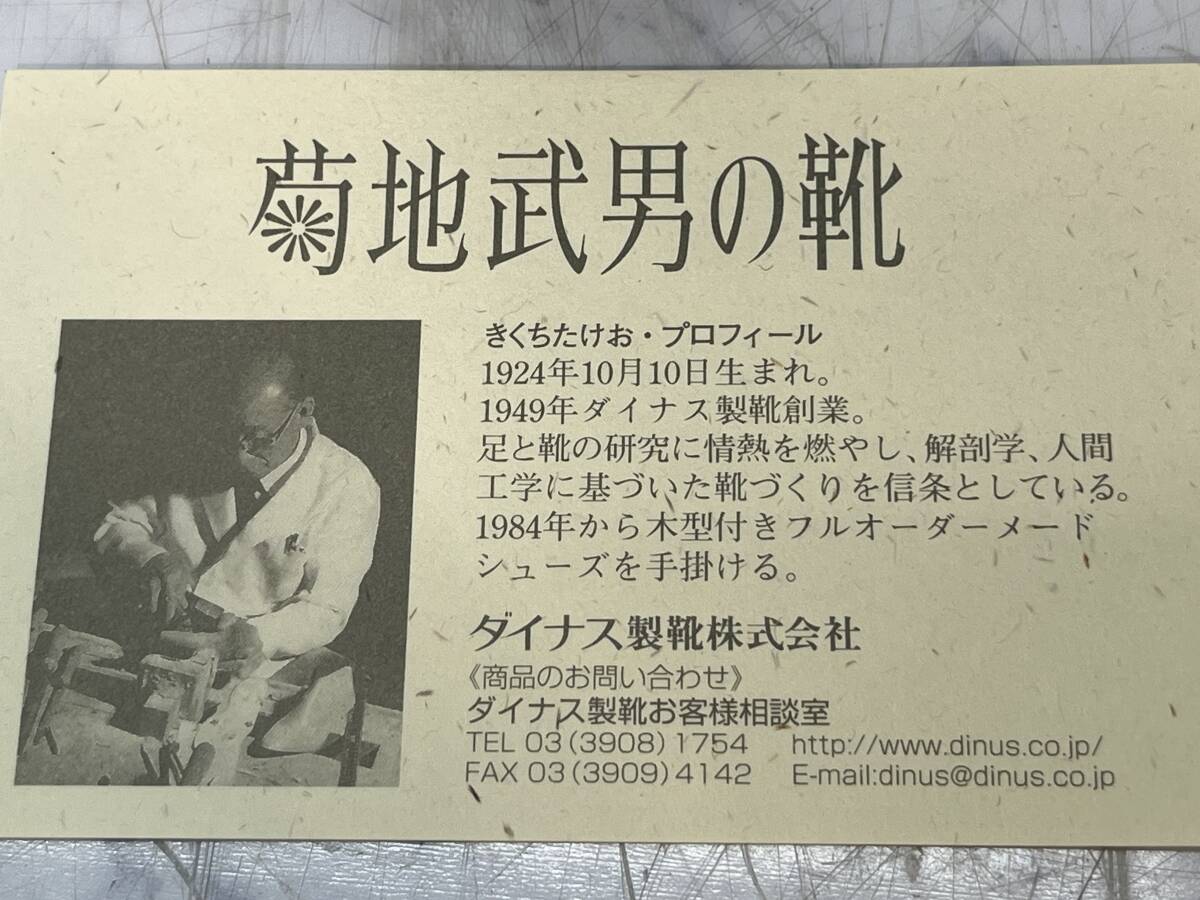 菊地武男の靴
きくちたけお・プロフィール
1924年10月10日生まれ。
1949年ダイナス製靴創業。
足と靴の研究に情熱を燃やし、解剖学、人間
工学に基づいた靴づくりを信条としている。
1984年から木型付きフルオーダーメード
シューズを手掛ける。
ダイナス製靴株式会社
《商品のお問い合わせ》
ダイナス製靴お客様相談室
TEL 03(3908)1754 http://www.dinus.co.jp/
FAX 03(3909)4142 E-mail:dinus@dinus.co.jp